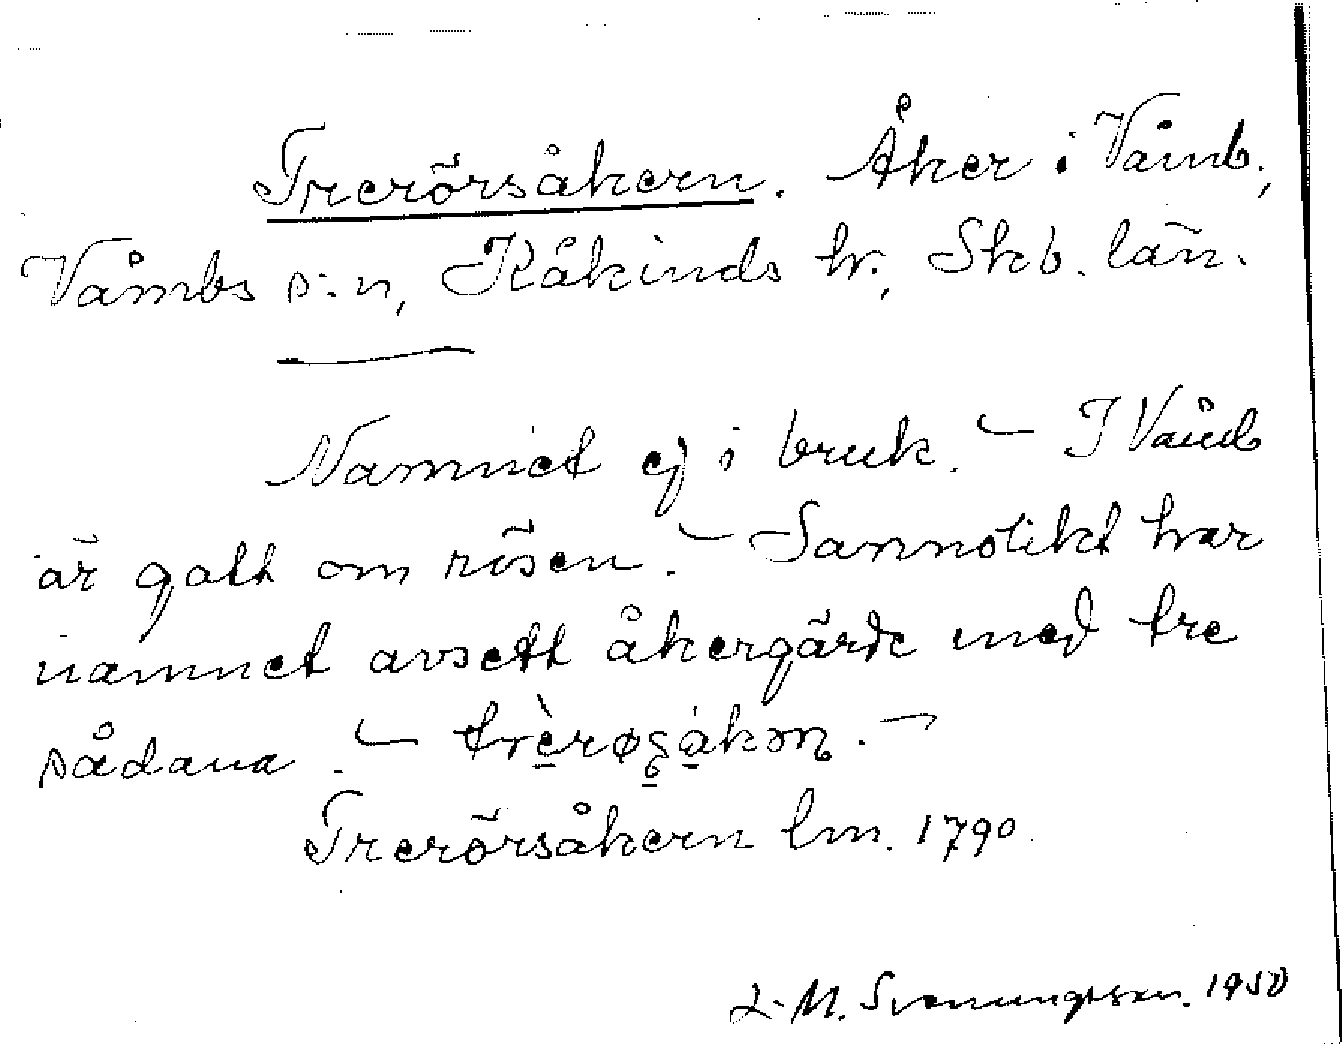 Trerörsåkern. Åker i Våmb,
Våmbs s:n, Kåkinds hr, Skb. län.
Namnet ej i bruk. – I Våmb
är gott om rösen. – Sannolikt har
namnet avsett åkergärde med tre
sådana. –
Trerörsåkern lm. 1790.
L. M. Svenungsson. 1950